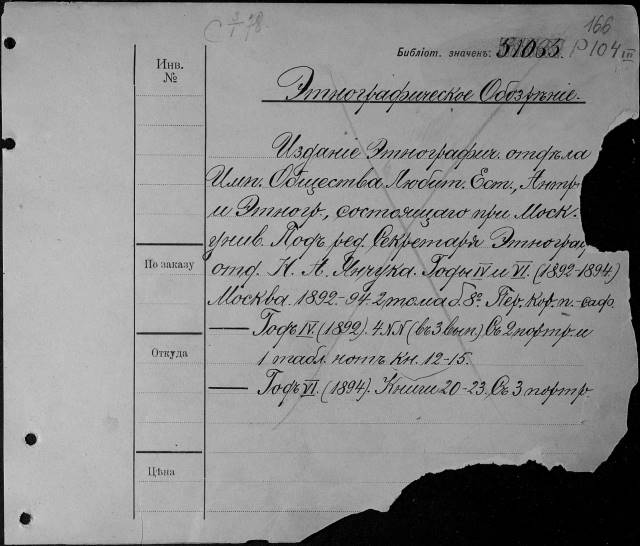 166
Библіот. значекъ: 31033. P104 III
Инв.
№
Этнографическое Обозрѣніе.
Изданіе Этнографич. отдѣла
Имп. Общества Любит. Ест., Антр.
и Этногр., состоящаго при Моск.
унив. Подъ ред. Секретаря Этнограф
По заказу
отд. Н. А. Янчука. Годы IV и VI. (1892-1894)
Москва. 1892-94. 2 тома б. 8º. Пер. кор. п.-саф.
— Годъ IV. (1892). 4 NN (въ 3 вып) Съ 2 портр. и
Откуда
1 табл. нотъ кн. 12-15.
— Годъ VI. (1894). Книги 20-23. Съ 3 портр.
Цѣна